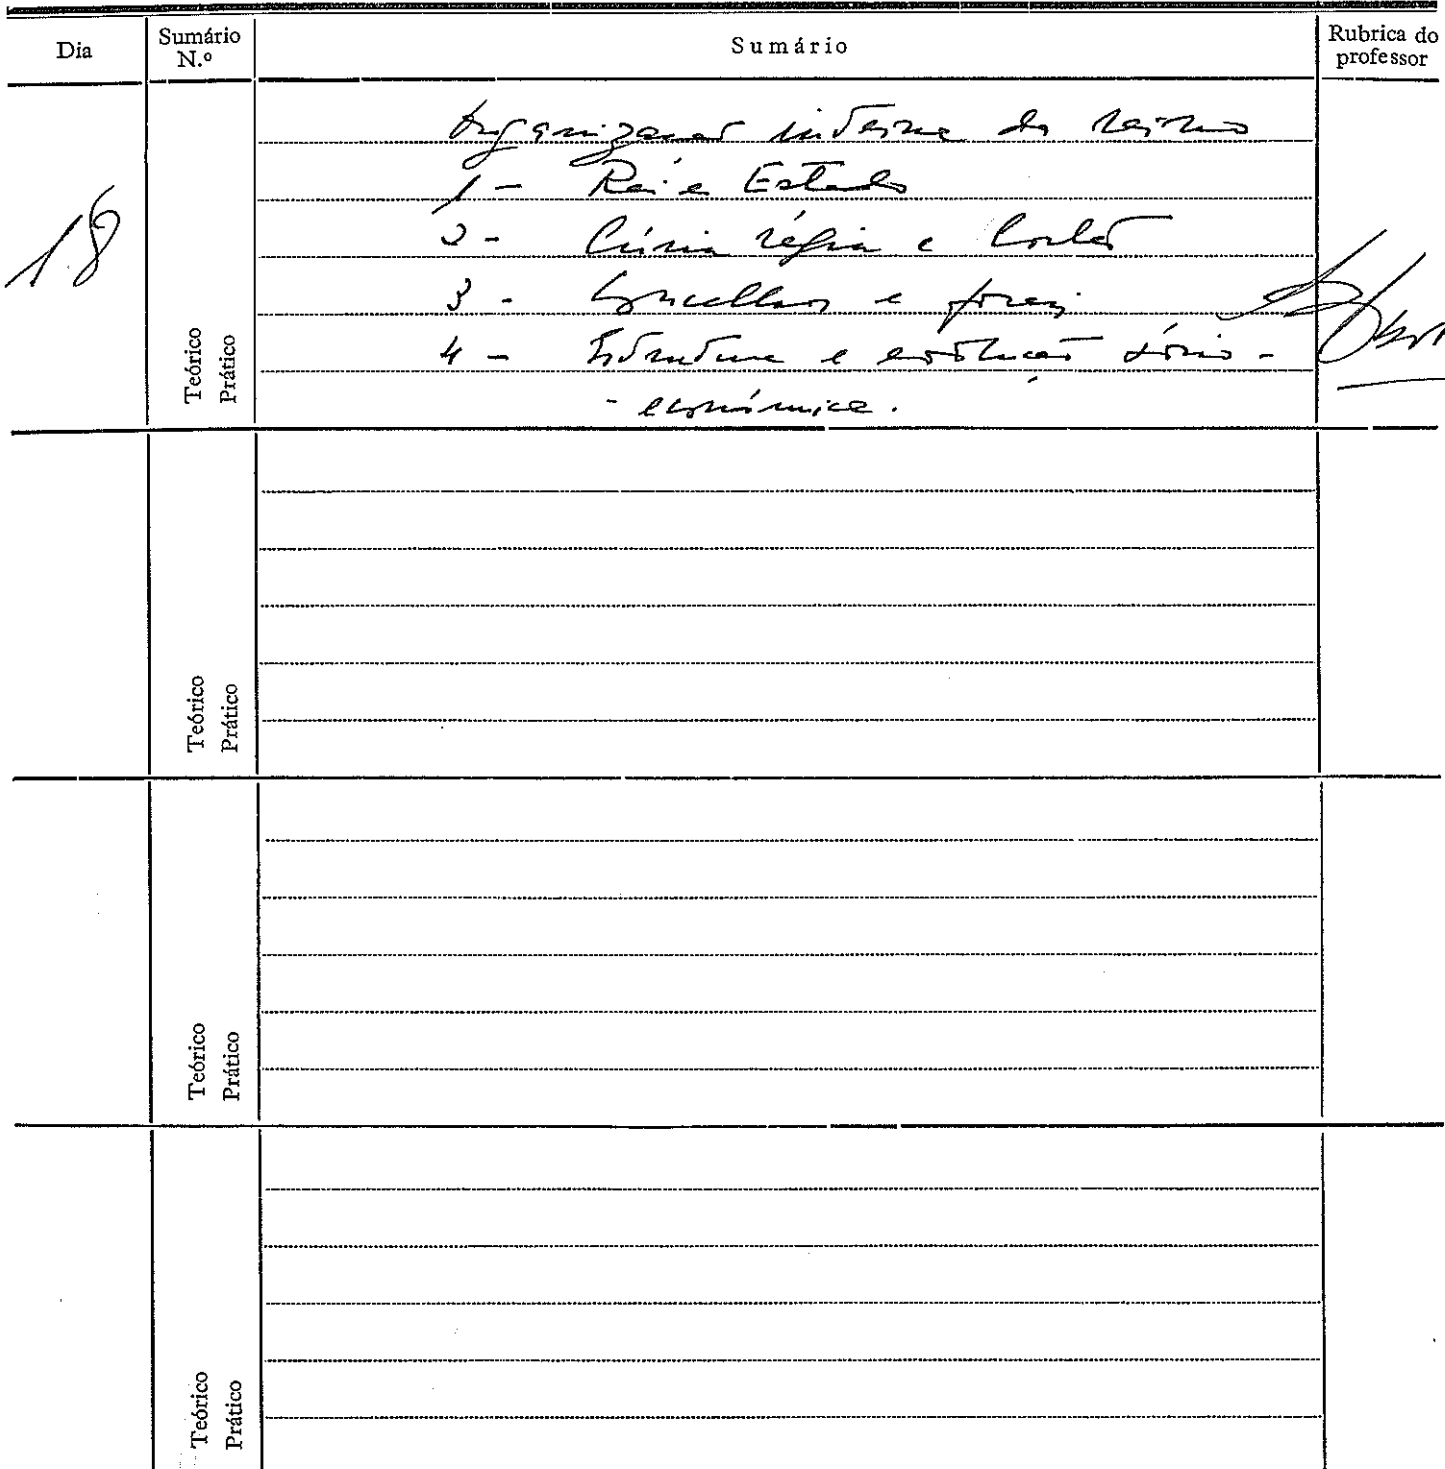 Dia
Sumário N.º
Sumário
Rubrica do professor
18
Organização interna do reino
1 - Rei e Estado
2 - Cúria régia e Cortes
3 - Concelhos e forais
4 - Estrutura e evolução sócio-
- económica.
Teórico
Prático
Teórico
Prático
Teórico
Prático
Teórico
Prático